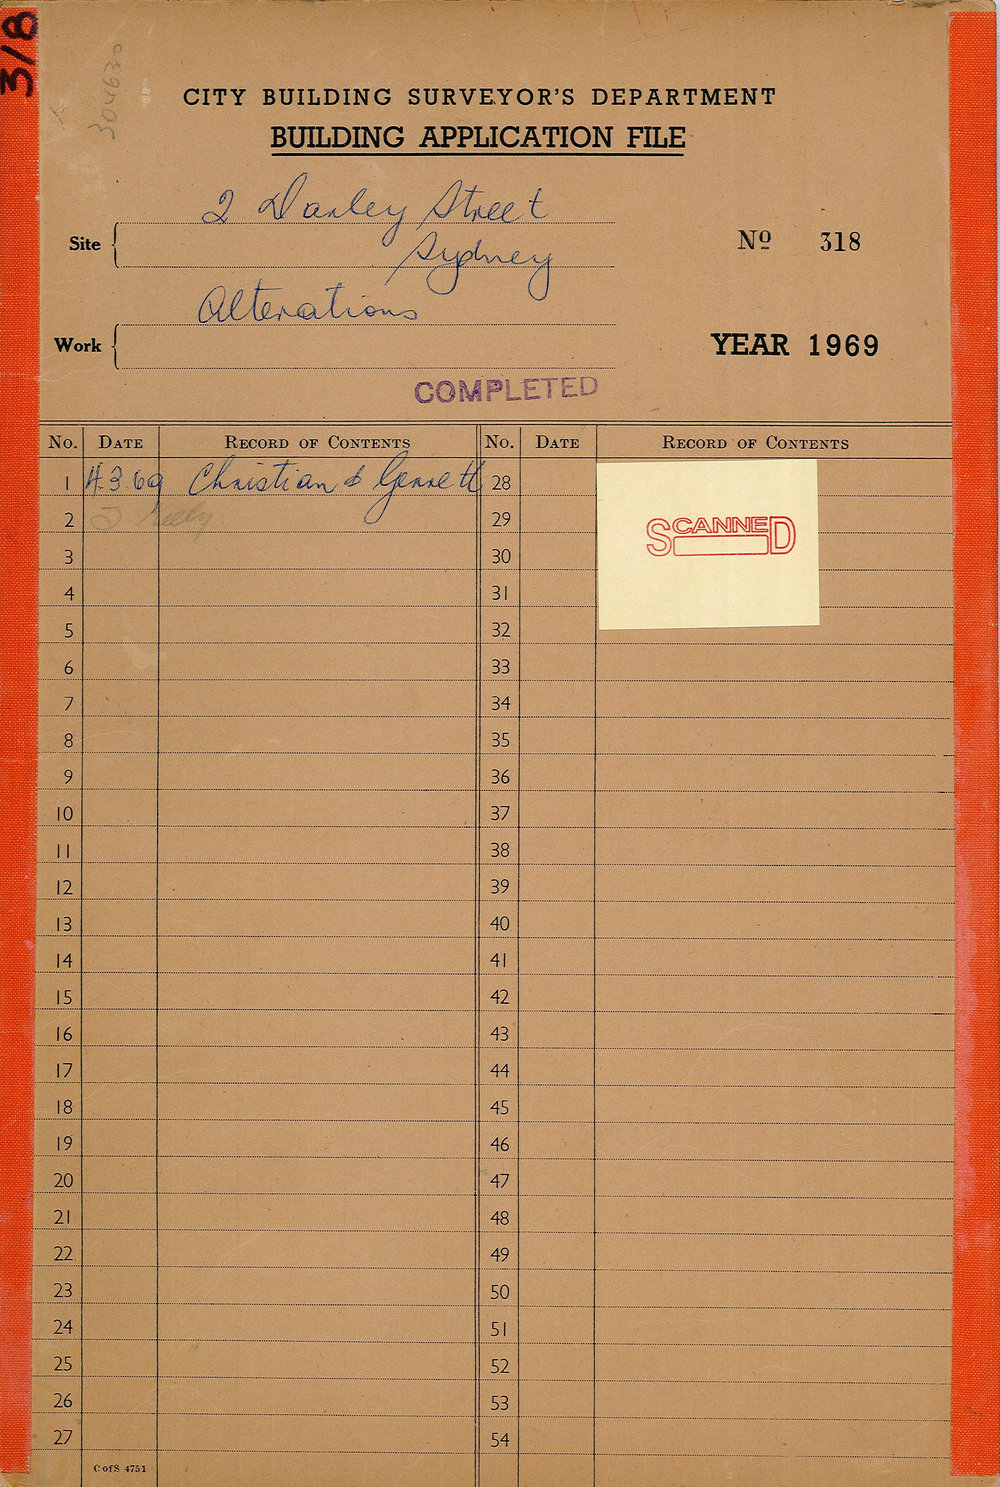 318
304630
CITY BUILDING SURVEYOR'S DEPARTMENT
BUILDING APPLICATION FILE
Site
2 Danley Street
Sydney
Nº 318
Work
Alterations
YEAR 1969
COMPLETED
No. DATE RECORD OF CONTENTS No. DATE RECORD OF CONTENTS
1 4.3.69 Christian & 28
2 29
SCANNED
3 30
4 31
5 32
6 33
7 34
8 35
9 36
10 37
11 38
12 39
13 40
14 41
15 42
16 43
17 44
18 45
19 46
20 47
21 48
22 49
23 50
24 51
25 52
26 53
27 54
C of S 4751